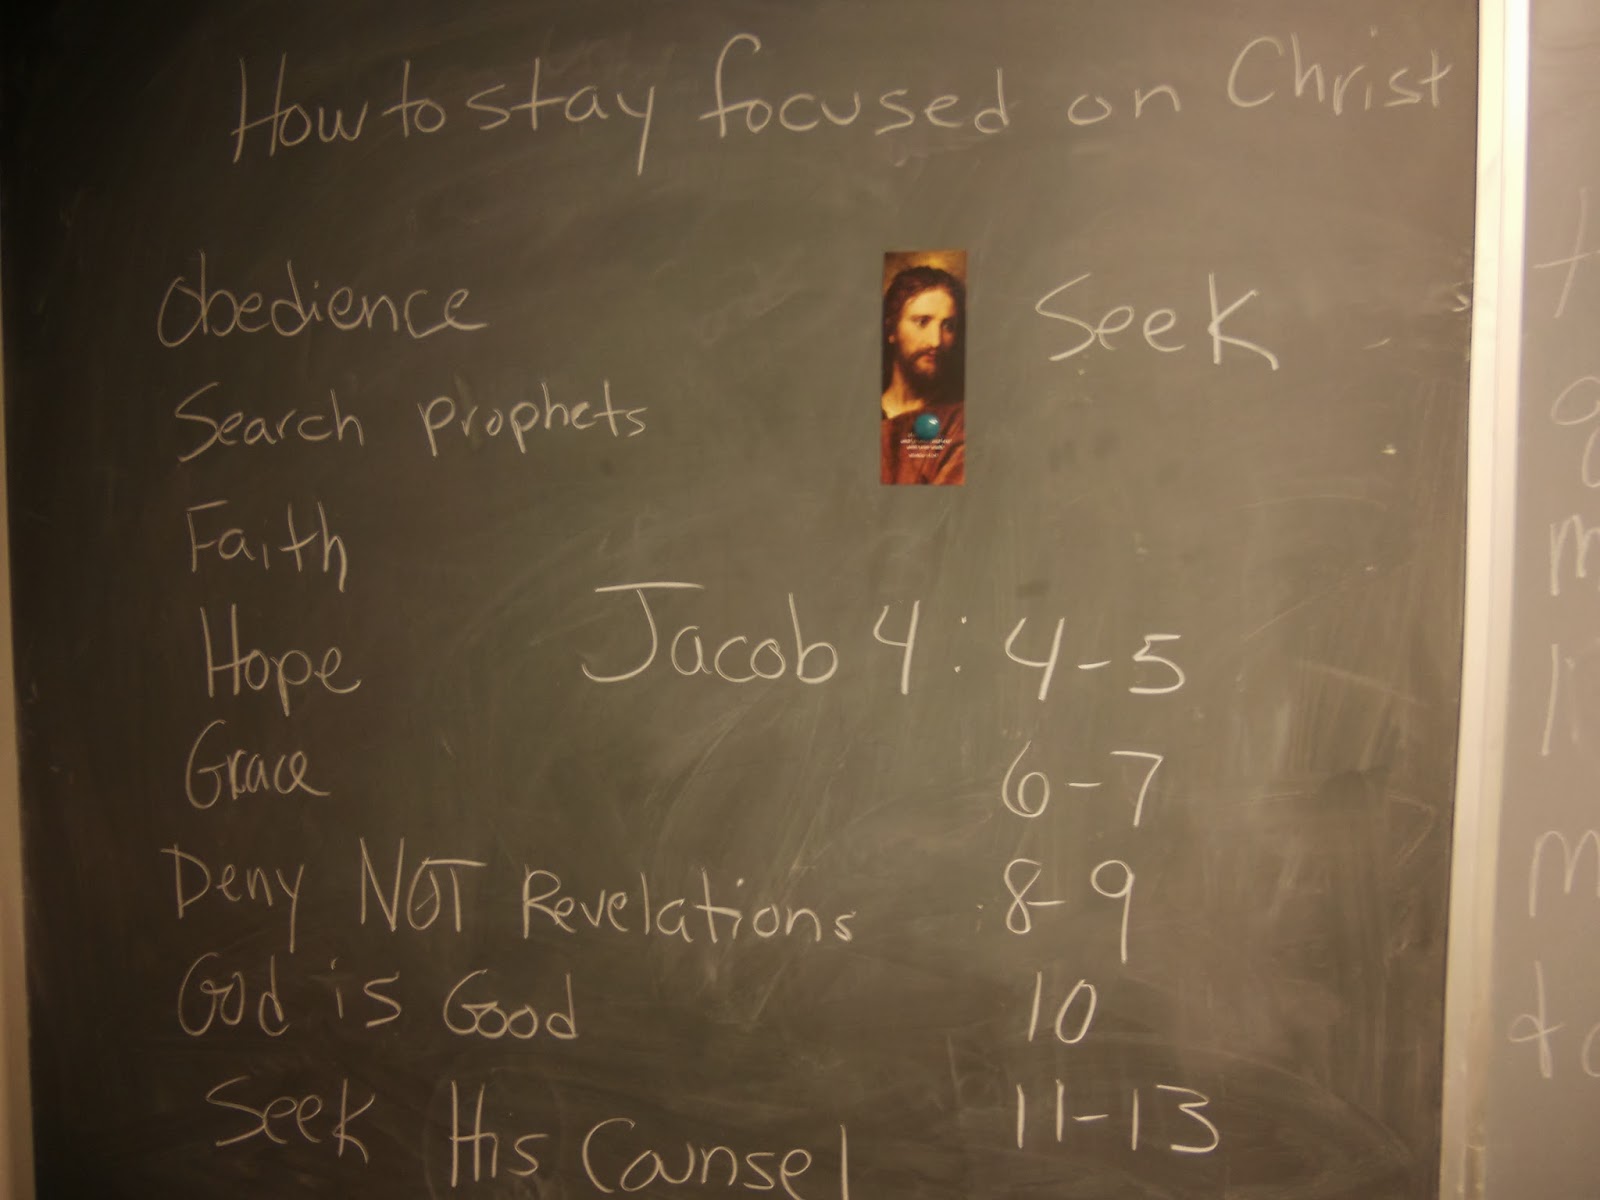 How to stay focused on Christ
Obedience
Seek
Search prophets
Faith
Hope
Jacob 4:4-5
Grace
6-7
Deny NOT Revelations
8-9
God is Good
10
Seek His Counsel
11-13